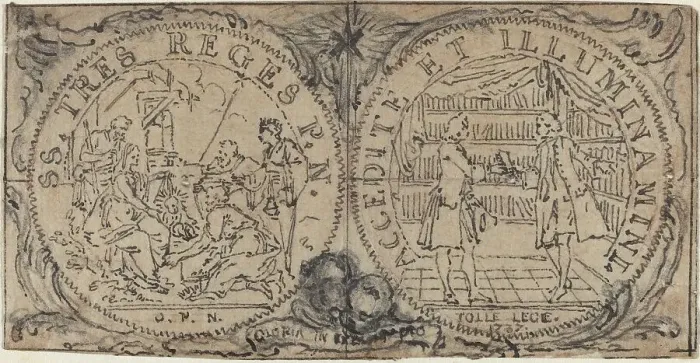 SS. TRES REGES P. N.
O. P. N.
ACCEDITE ET ILLUMINAMINI.
TOLLE LEGE.
GLORIA IN